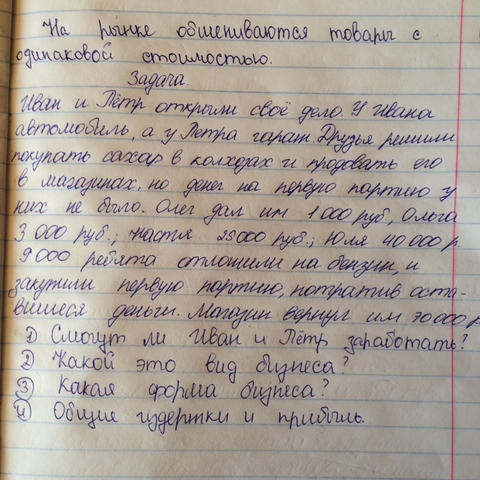 На рынке обмениваются товары с
одинаковой стоимостью.
Задача.
Иван и Пётр открыли своё дело. У Ивана
автомобиль, а у Петра гараж. Друзья решили
покупать сахар в колхозах и продовать его
в магазинах, но денег на первую партию у
них не было. Олег дал им 1 000 руб, Ольга
3 000 руб.; Настя 25000 руб.; Юля 40 000 р.
9 000 ребята отложили на бензин, и
закупили первую партию, потратив оста-
вшиеся деньги. Магазин вернул им 70 000 р
1) Смогут ли Иван и Пётр заработать?
2) Какой это вид бизнеса?
3) Какая форма бизнеса?
4) Общие издертки и прибыль.